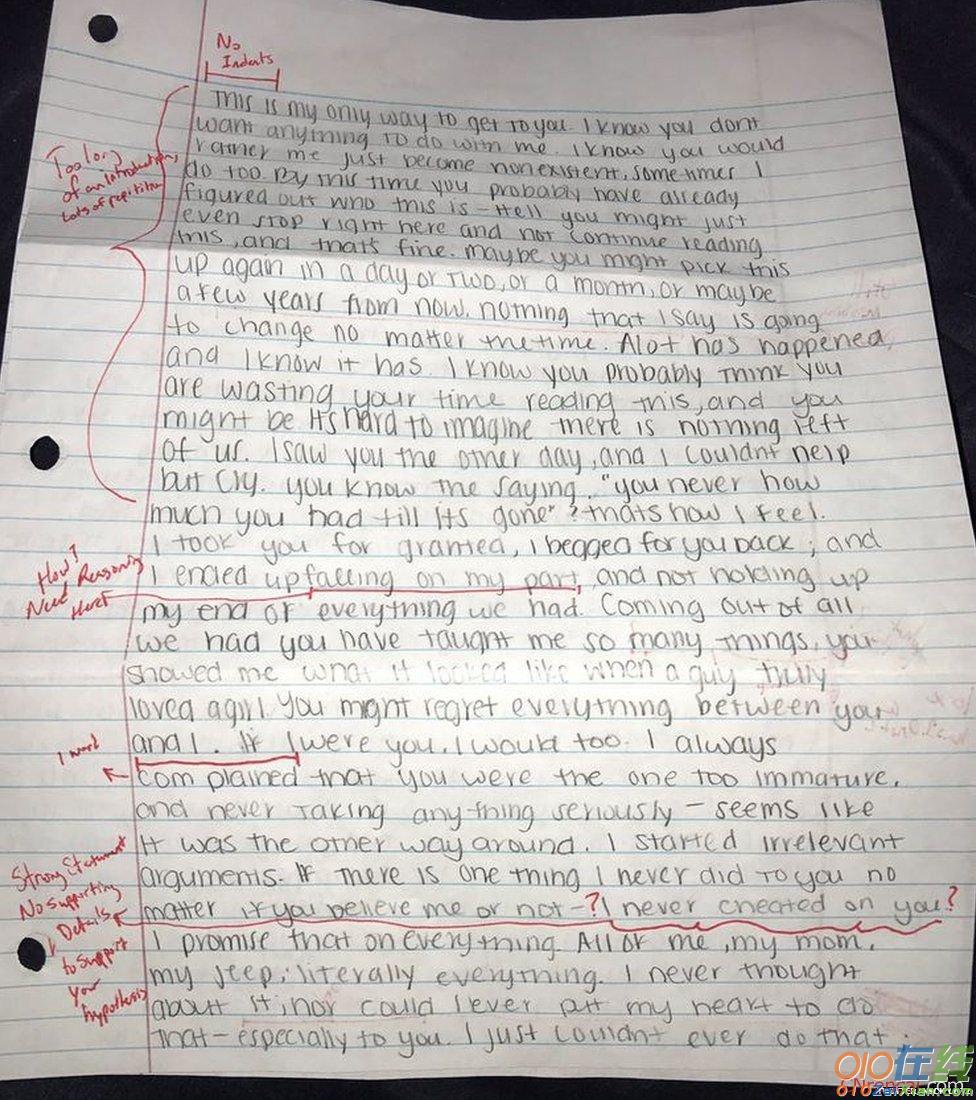 No
Indents
This is my only way to get to you. I know you dont
want anything to do with me. I know you would
rather me just become nonexistent, sometimes I
do too. By this time you probably have already
figured out who this is - Hell you might just
even stop right here and not continue reading
this, and thats fine. maybe you might pick this
up again in a day or two, or a month, or maybe
a few years from now. nothing that I say is going
to change no matter the time. Alot has happened,
and I know it has. I know you probably think you
are wasting your time reading this, and you
might be. Its hard to imagine there is nothing left
of us. I saw you the other day, and I couldnt help
but cry. you know the saying, "you never how
much you had till its gone"? thats how I feel.
I took you for granted, I begged for you back; and
I ended up falling on my part, and not holding up
my end of everything we had. Coming out of all
we had you have taught me so many things, you
showed me what it looked like when a guy truly
loved a girl. You might regret everything between you
and I. If I were you, I would too. I always
complained that you were the one too immature,
and never taking anything seriously - seems like
it was the other way around. I started irrelevant
arguments. If there is one thing I never did to you no
matter if you believe me or not -? I never cheated on you?
I promise that on everything. All of me, my mom,
my jeep; literally everything. I never thought
about it; nor could I ever put my heart to do
that - especially to you. I just couldnt ever do that.
Too long
of an Introduction,
lots of repitition
How?
Need Reasoning
Here!
1 word
Strong Statement
No supporting
Details
to support
your
hypothesis
010在线